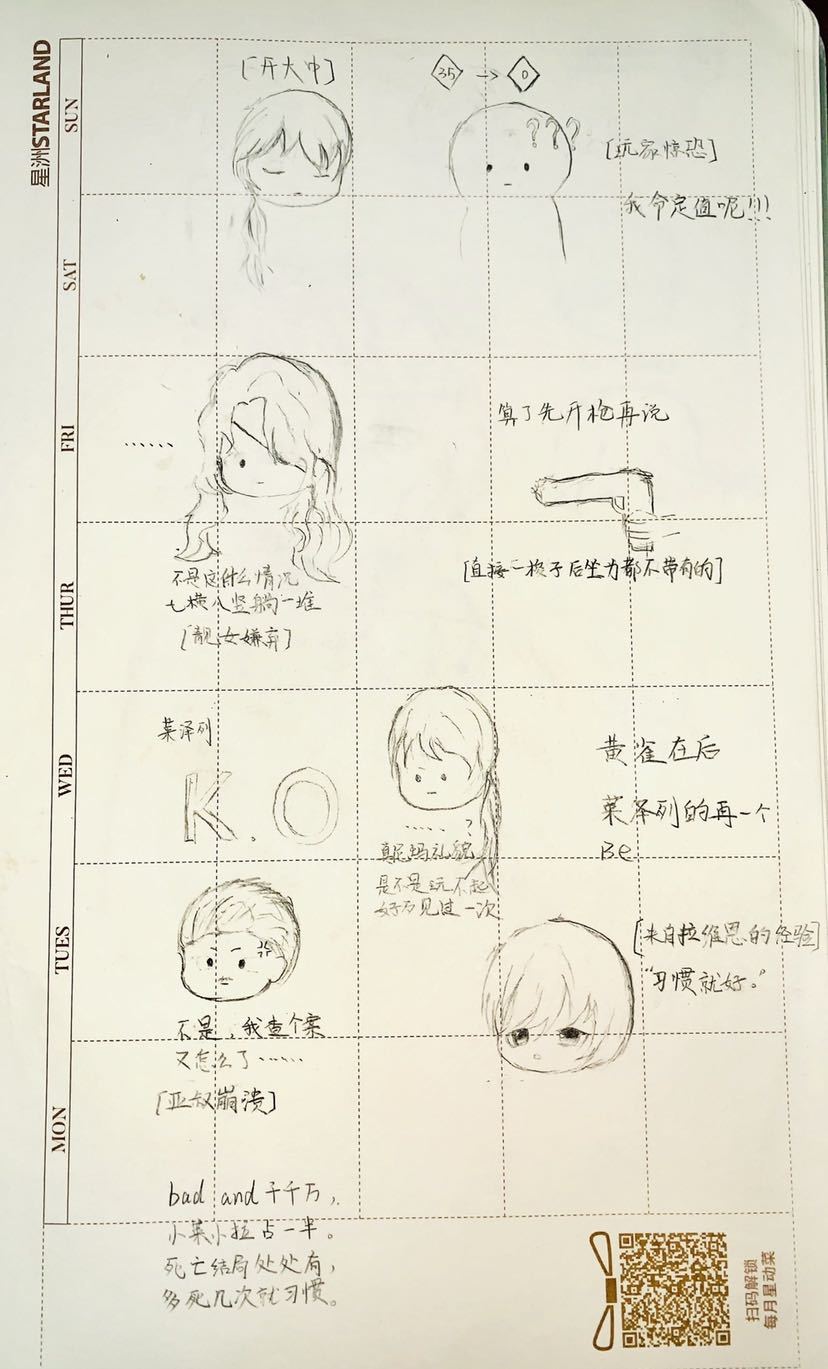 星洲STARLAND
SUN
SAT
FRI
THUR
WED
TUES
MON
[开大中]
35 → 0
???
[玩家惊恐]
我命定值呢!!!
......
不是这什么情况
七横八竖躺一堆
[靓女嫌弃]
算了先开枪再说
[直接一梭子后坐力都不带有的]
莱泽列
K.O
.....?
真尼玛礼貌
是不是玩不起
好歹见过一次
黄雀在后
莱泽列的再一个
Be
不是,我查个案
又怎么了......
[亚叔崩溃]
[来自拉维恩的经验]
“习惯就好。”
bad and千千万,
小莱小拉占一半。
死亡结局处处有,
多死几次就习惯。
扫码解锁
每月星动菜